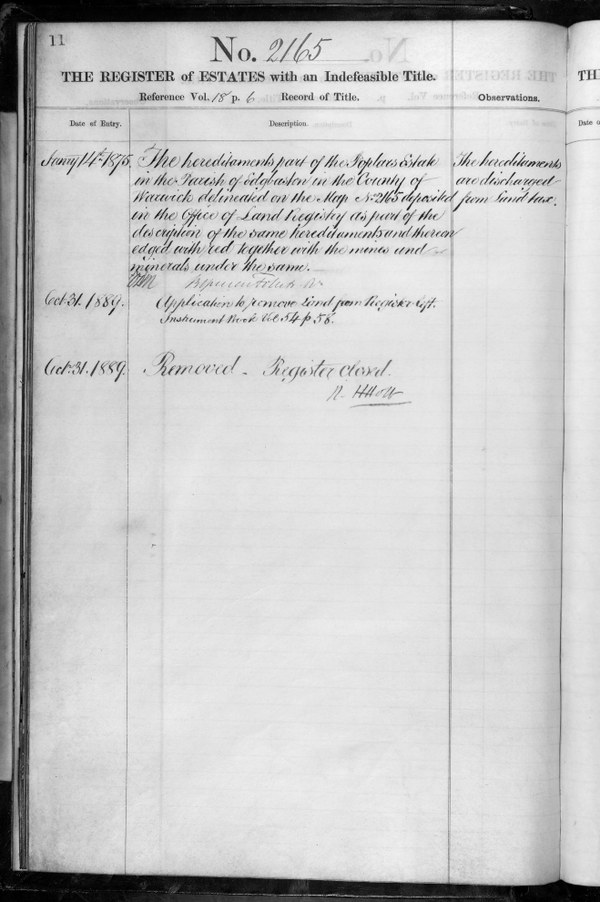 11
No. 2165
THE REGISTER of ESTATES with an Indefeasible Title.
Reference Vol. 18 p. 6 Record of Title.
Observations.
Date of Entry.
Description.
Jany 14th 1875.
The hereditaments part of the Poplars Estate
in the Parish of Edgbaston in the County of
Warwick delineated on the Map No 2165 deposited
in the Office of Land Registry as part of the
discription of the same hereditaments and thereon
edged with red together with the mines and
minerals under the same.
The hereditaments
are discharged
from Land tax.
Oct. 31. 1889.
Application to remove Land from Register Left.
Instrument Book Vol 54 p 58.
Oct. 31. 1889.
Removed - Register closed.
TH
Date o